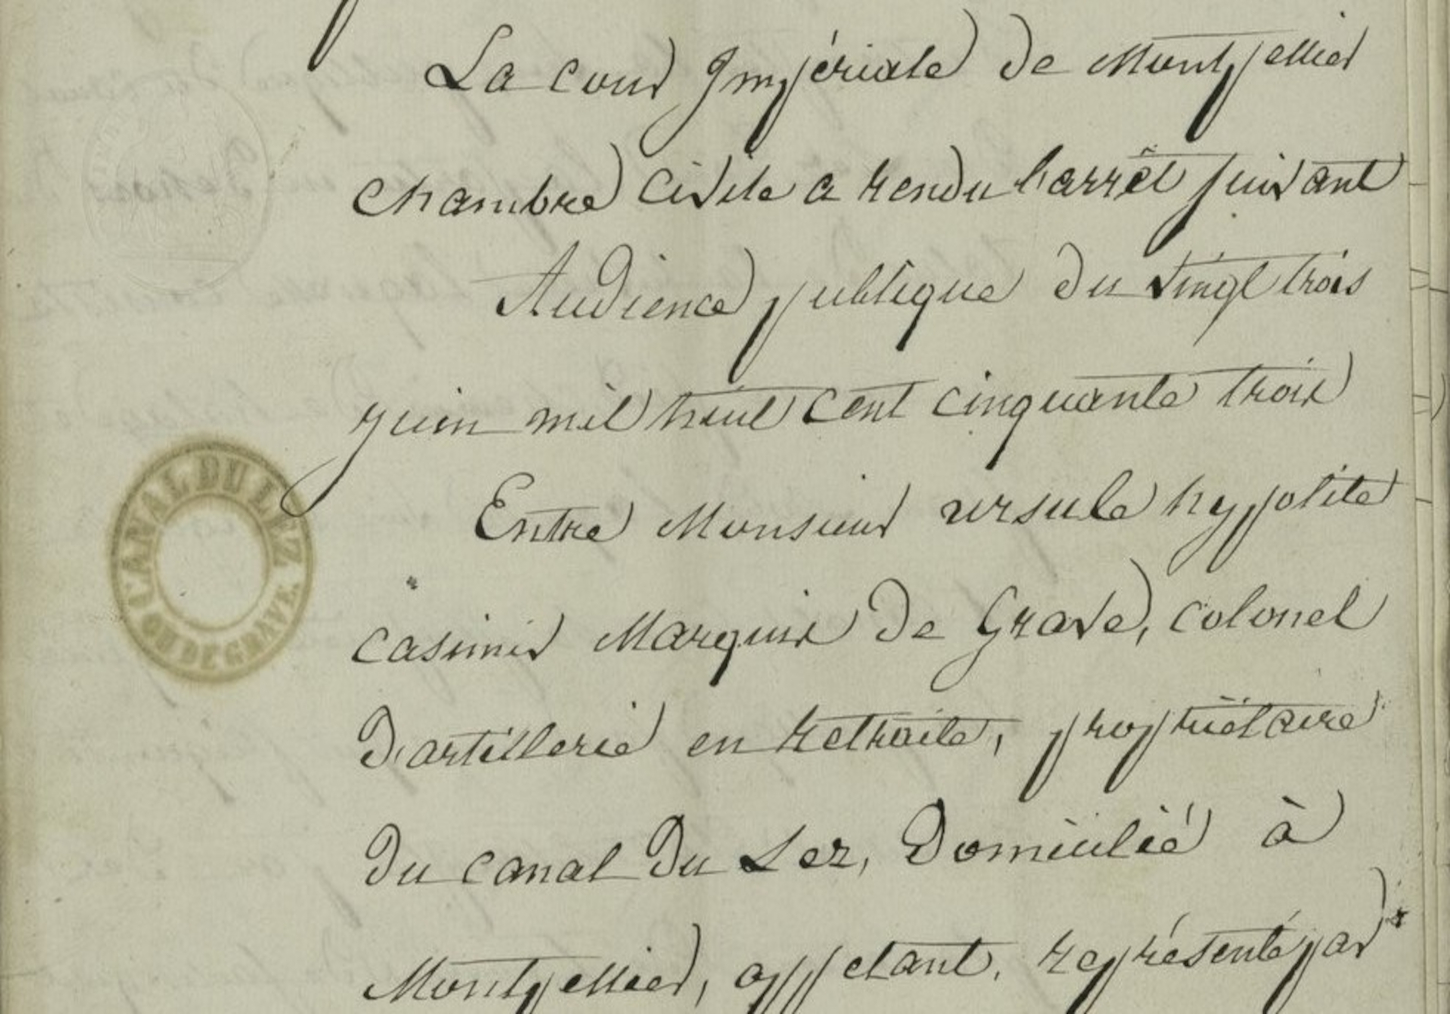 La cour Impériale de Montpellier
chambre civile a rendu l'arrêt suivant
Audience publique du vingt trois
juin mil huit cent cinquante trois
Entre Monsieur ursule hyppolite
casimir Marquis de Grave, colonel
D'artillerie en retraite, propriétaire
Du canal Du Lez, Domicilié à
Montpellier, appelant, représenté par
CANAL DU LEZ
OU DE GRAVE.